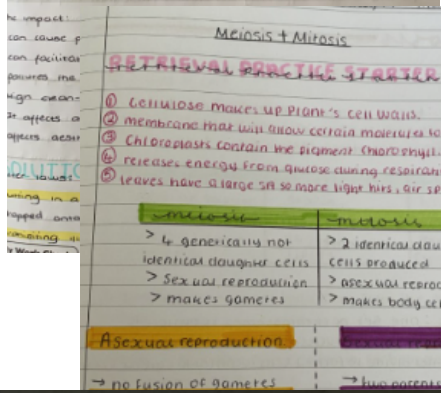 he impact:
can cause p
can facilitat
pollutes the
It affects a
affects aest
Meiosis + Mitosis
RETRIEVAL PRACTICE STARTER
① Cellulose makes up Plant's cell walls.
② membrane that will allow certain molecules to
③ Chloroplasts contain the pigment chlorophyll.
④ releases energy from glucose during respirat
⑤ leaves have a large SA so more light hits, air sp
meiosis
mitosis
> 4 genetically not
identical daughter cells
> Sexual reproduction
> makes gametes
> 2 identical dau
cells produced
> asexual reprod
> makes body cel
Asexual reproduction
Sexual repro
→ no fusion of gametes
→ two parents